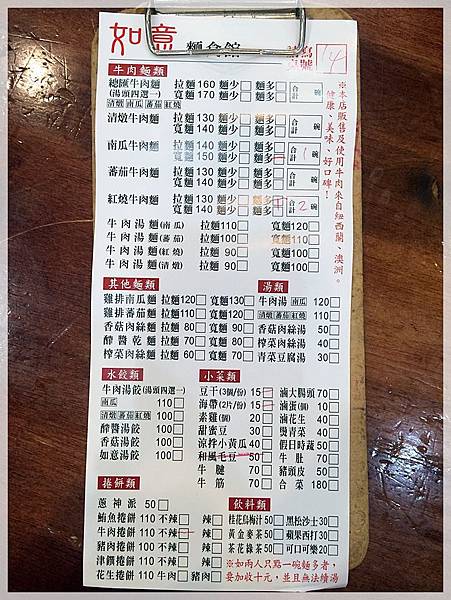 如意 麵食館
桌號 14
牛肉麵類
總匯牛肉麵 拉麵160 麵少□ 麵多□ 合計 碗
(湯頭四選一) 寬麵170 麵少□ 麵多□
清燉 南瓜 蕃茄 紅燒
清燉牛肉麵 拉麵130 麵少□ 麵多□ 合計 碗
寬麵140 麵少□ 麵多□
南瓜牛肉麵 拉麵140 麵少□ 麵多□ 合計 1 碗
寬麵150 麵少□ 麵多□
蕃茄牛肉麵 拉麵130 麵少□ 麵多□ 合計 碗
寬麵140 麵少□ 麵多□
紅燒牛肉麵 拉麵130 麵少□ 麵多 合計 2 碗
寬麵140 麵少□ 麵多□
牛肉湯麵(南瓜) 拉麵110□ 寬麵120□
牛肉湯麵(蕃茄) 拉麵100□ 寬麵110□
牛肉湯麵(紅燒) 拉麵 90□ 寬麵100□
牛肉湯麵(清燉) 拉麵 90□ 寬麵100□
※本店販售及使用牛肉來自紐西蘭、澳洲。
健康、美味、好口碑!
其他麵類
雞排南瓜麵 拉麵120□ 寬麵130□
雞排蕃茄麵 拉麵110□ 寬麵120□
香菇肉絲麵 拉麵 80□ 寬麵 90□
醡醬乾麵 拉麵 60□ 寬麵 70□
榨菜肉絲麵 拉麵 60□ 寬麵 70□
湯類
牛肉湯 南瓜 120□
清燉 蕃茄 紅燒 110□
香菇肉絲湯 50□
榨菜肉絲湯 40□
青菜豆腐湯 30□
水餃類
牛肉湯餃(湯頭四選一)
南瓜 110□
清燉 蕃茄 紅燒 100□
醡醬湯餃 60□
香菇湯餃 60□
如意湯餃 60□
小菜類
豆干(3個/份) 15 滷大腸頭 70□
海帶(2片/份) 15 滷蛋(個) 10□
素雞(個) 20□ 滷花生 40□
甜蜜豆 30□ 燙青菜 40□
涼拌小黃瓜 40 假日時蔬 50□
和風毛豆 50 牛肚 70□
牛腱 70□ 豬頭皮 50□
牛筋 70□ 合菜 180□
捲餅類
蔥神派 50□
鮪魚捲餅 110 不辣□ 辣□
牛肉捲餅 110 不辣 辣□
豬肉捲餅 100 不辣□ 辣□
津饌捲餅 110 不辣□ 辣□
花生捲餅 110 牛肉□ 豬肉□
飲料類
桂花烏梅汁 50□ 黑松沙士 30□
黃金麥茶 50□ 蘋果西打 30□
茶花綠茶 50□ 可口可樂 20□
※如兩人只點一碗麵多者,
要加收十元,並且無法續湯